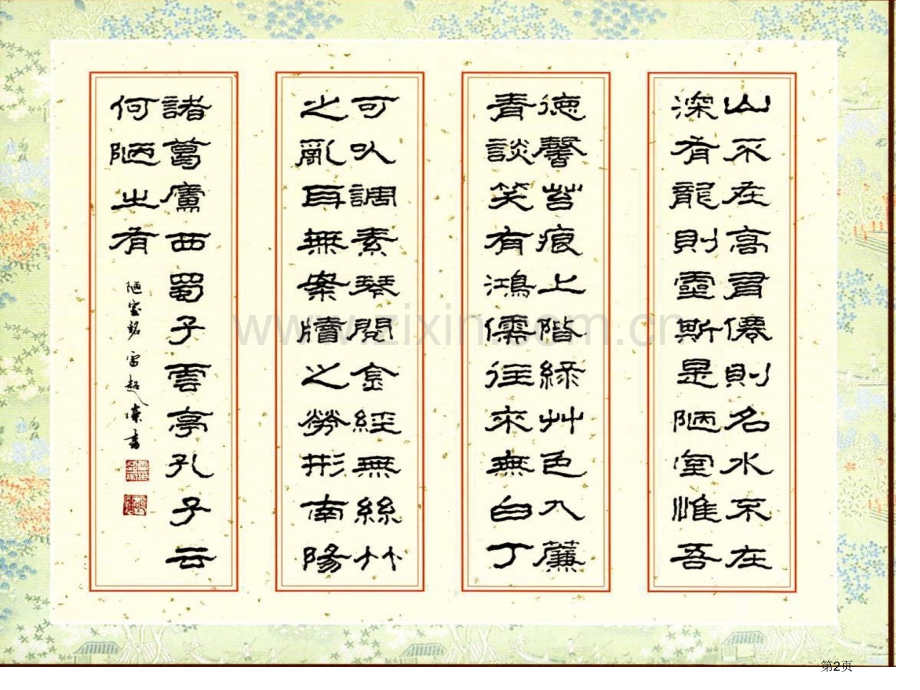 山不在高有僊則名水不在
深有龍則靈斯是陋室惟吾
德馨苔痕上階綠艸色入簾
青談笑有鴻儒往來無白丁
可以調素琴閱金經無絲竹
之亂耳無案牘之勞形南陽
諸葛廬西蜀子雲亭孔子云
何陋之有
陋室銘 雷超 書
www.zixin.com.cn
第2页